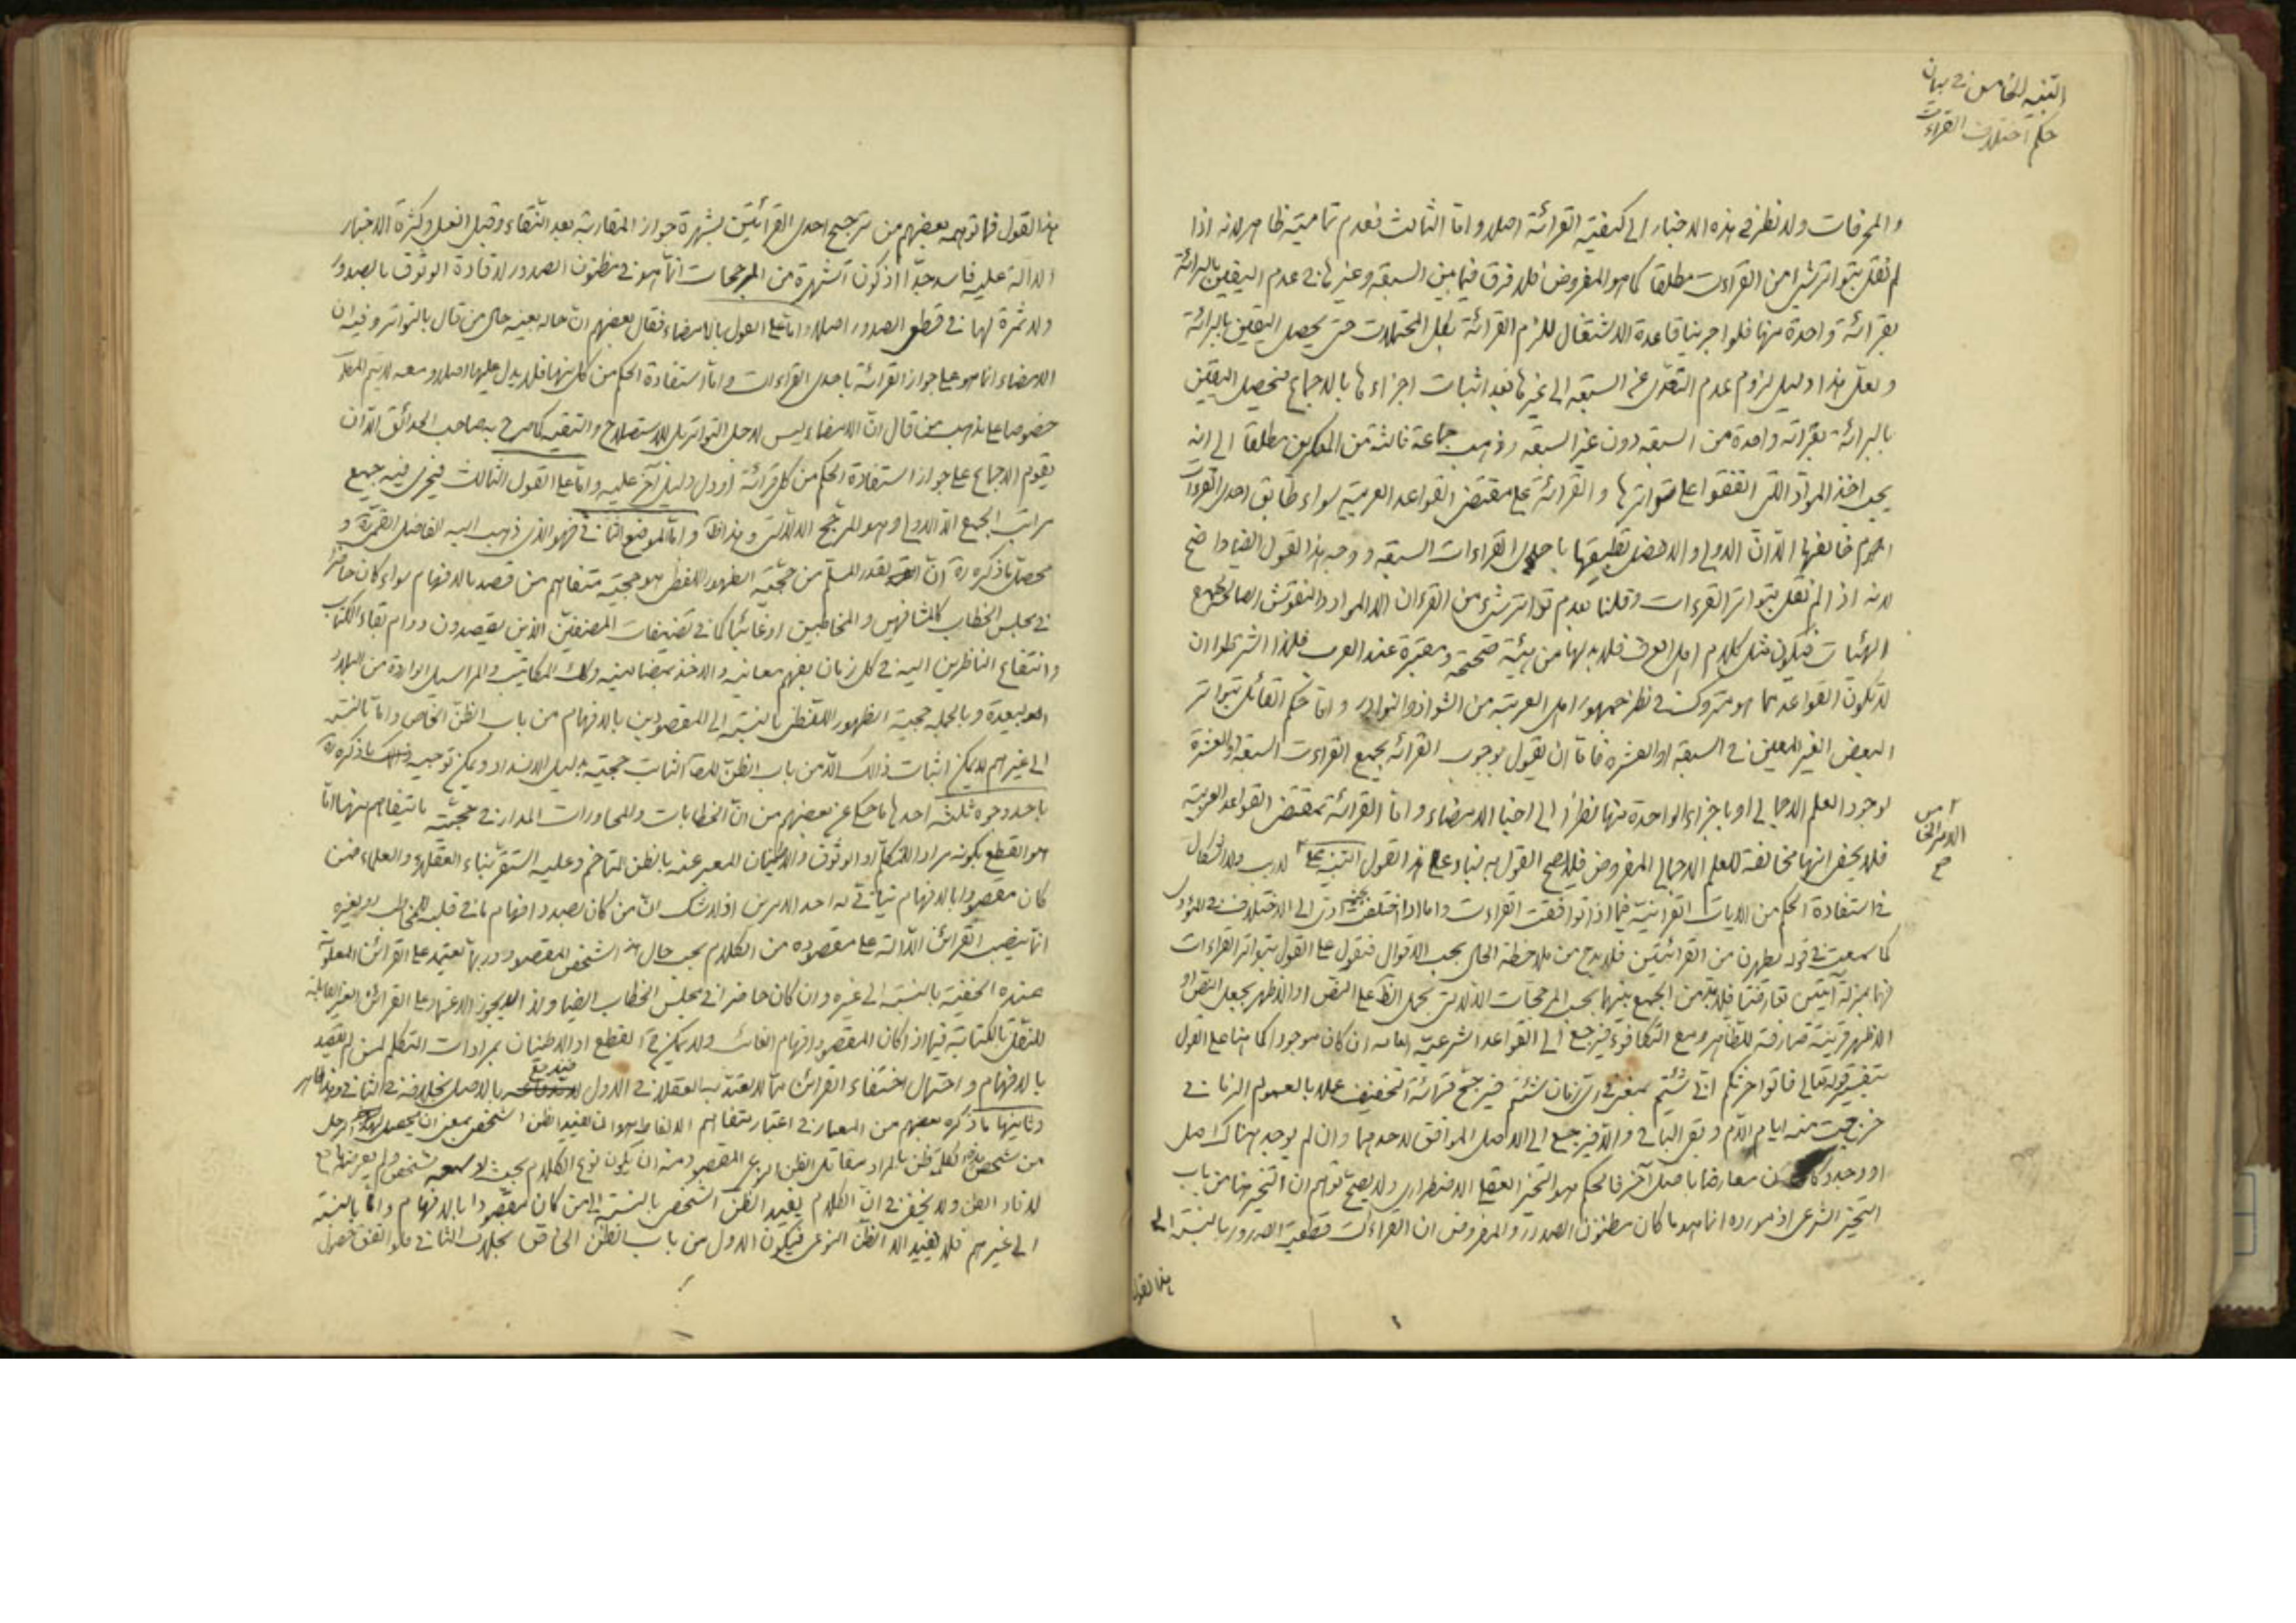 التنبيه الخامس في بيان
حكم اختلاف القراءات
والمحرفات ولا نظر في هذه الاخبار الى كيفية القرائة اصلا واما الثالث فعدم تماميته ظاهر لانه اذا
لم نقل بتواتر شئ من القراءات مطلقا كما هو المفروض فلا فرق فيما بين السبعة وغيرها في عدم اليقين بالبرائة
بقرائة واحدة منها فلو اجرينا قاعدة الاشتغال للزم القرائة بكل المحتملات حتى يحصل اليقين بالبرائة
ولعل هذا دليل لزوم عدم التعدى عن السبعة الى غيرها بعد اثبات اجزاءها بالاجماع فيحصل اليقين
بالبرائة بقرائة واحدة من السبعة دون غير السبعة وذهب جماعة ثالثة من المنكرين مطلقا الى انه
يجب اخذ المواد التى اتفقوا على تواترها والقرائة على مقتضى القواعد العربية سواء طابق احدى القراءات
ام خالفها الا ان الاولى والافضل تطبيقها باحدى القراءات السبعة ووجه هذا القول ايضا واضح
لانه اذا لم نقل بتواتر القراءات وقلنا بعدم تواتر شئ من القران الا المواد والنقوش الصالحة لجميع
الهيئات فيكون مثل كلام اهل العرف فلا بد لها من هيئة صحيحة ومعتبرة عند العرب فلذا اشترطوا ان
لا تكون القواعد مما هو متروك في نظر جمهور اهل العربية من الشواذ والنوادر واما حكم القائل بتواتر
البعض الغير المعين في السبعة او العشرة فاما ان يقول بوجوب القرائة بجميع القراءات السبعة او العشرة
لوجود العلم الاجمالى او باجزاء الواحدة منها نظرا الى اخبار الامضاء واما القرائة بمقتضى القواعد العربية
فلا يخفى انها مخالفة للعلم الاجمالى المفروض فلا يصح القول به بناء على هذا القول التنبيه على لا ريب ولا اشكال
الامر الخامس
في استفادة الحكم من الايات القرآنية فيما اذا توافقت القراءات واما اذا اختلفت بحيث ادى الى الاختلاف في المؤدى
كما سمعت في قوله يطهرن من القرائتين فلا بد ح من ملاحظة الحال بحسب الاقوال فنقول على القول بتواتر القراءات
فهما بمنزلة آيتين تعارضتا فلا بد من الجمع بينهما بحسب المرجحات الدلالتى بحمل الظ على النص او الاظهر بجعل النص او
الاظهر قرينة صارفة للظاهر ومع التكافؤ فيرجع الى القواعد الشرعية العامه ان كان موجودا كما هنا على القول
بتفسير قوله تعالى فاتوا حرثكم انى شئتم بمعنى في اى زمان شئتم فيرجح قرائة التخفيف عملا بالعموم الزمانى
خرج حيث منه ايام الدم وبقى الباقى والا فيرجع الى الاصل الموافق لاحدهما وان لم يوجد هناك اصل
او وجد وكان معارضا باصل آخر فالحكم هو التخيير العقلى الاضطرارى ولا يصح توهم ان التخيير هنا من باب
التخيير الشرعى اذ مورده انما هو ما كان مظنون الصدور والمفروض ان القراءات قطعية الصدور بالنسبة الى
هذا القول
هذا القول فما توهمه بعضهم من ترجيح احدى القرائتين بشهرة جواز المقاربة بعد النقاء وقبل الغسل وكثرة الاخبار
الدالة عليه فاسد جدا اذ كون الشهرة من المرجحات انما هو في مظنون الصدور لافادة الوثوق بالصدور
ولا ثمرة لها في قطعى الصدور اصلا واما على القول بالامضاء فقال بعضهم ان حاله بعينه حال من قال بالتواتر وفيه ان
الامضاء انما هو على جواز القرائة باحدى القراءات واما استفادة الحكم من كل منها فلا يدل عليها اصلا ومعه لا يتم المط
خصوصا على مذهب من قال ان الامضاء ليس لاجل التواتر بل للاستصلاح والتقية كما صرح به صاحب الحدائق الا ان
يقوم الاجماع على جواز استفادة الحكم من كل قرائة او دل دليل آخر عليه واما على القول الثالث فيجرى فيه جميع
مراتب الجمع الا الاولى وهو المرجح الدلالتى وهذا ظ واما الموضع الثانى فهو الذى ذهب اليه الفاضل القمى ره و
محصل ما ذكره ره ان القدر المسلم من حجية الظهور اللفظى هو حجية متفاهم من قصد بالافهام سواء كان حاضرا
في مجلس الخطاب كالمشافهين والمخاطبين او غائبا كما في تصنيفات المصنفين الذين يقصدون دوام بقاء الكتاب
وانتفاع الناظرين اليه في كل زمان بفهم معانيه والاخذ بمضامينه وكك المكاتيب والمراسيل الواردة من البلاد
البعيدة وبالجمله حجية الظهور اللفظى بالنسبة الى المقصودين بالافهام من باب الظن الخاص واما بالنسبة
الى غيرهم لا يمكن اثبات ذالك الا من باب الظن المط الثابت حجيته بدليل الانسداد ويمكن توجيه ذلك ما ذكره ره
باحد وجوه ثلثة احدها ما حكى عن بعضهم من ان الخطابات والمحاورات المدار في حجية ما يتفاهم منها اما
هو القطع بكونه مراد المتكلم او الوثوق والاطمينان المعبر عنه بالظن المتاخم وعليه استقر بناء العقلاء والعلماء فمن
كان مقصودا بالافهام يتاتى له احد الامرين اذ لا شك ان من كان بصدد افهام ما في قلبه للمخاطب او لغيره
انما ينصب القرائن الدالة على مقصوده من الكلام بحسب حال هذا الشخص المقصود وربما يعتمد على القرائن المعلومة
عنده الخفية بالنسبة الى غيره وان كان حاضرا في مجلس الخطاب ايضا ولذا لا يجوز الاعتماد على القرائن الغير القابلة
للنقل بالكتابة فيما اذا كان المقصود افهام الغائب ولا يمكن ح القطع او الاطمينان بمرادات المتكلم لمن لم يقصد
بالافهام واحتمال اختفاء القرائن مما لا يعتد به العقلاء في الاول فيدفع بالاصل بخلافه في الثانى وهذا ظاهر
وثانيها ما ذكره بعضهم من المعيار في اعتبار متفاهم الالفاظ هو ان يفيد الظن الشخصى بمعنى ان يحصل لهذا الرجل
لافاد الظن ولا يخفى في ان الكلام يفيد الظن الشخصى بالنسبة الى من كان مقصودا بالافهام واما بالنسبة
الى غيرهم فلا يفيد الا الظن النوعى فيكون الاول من باب الظن الخاص بخلاف الثانى فلو اتفق حصول